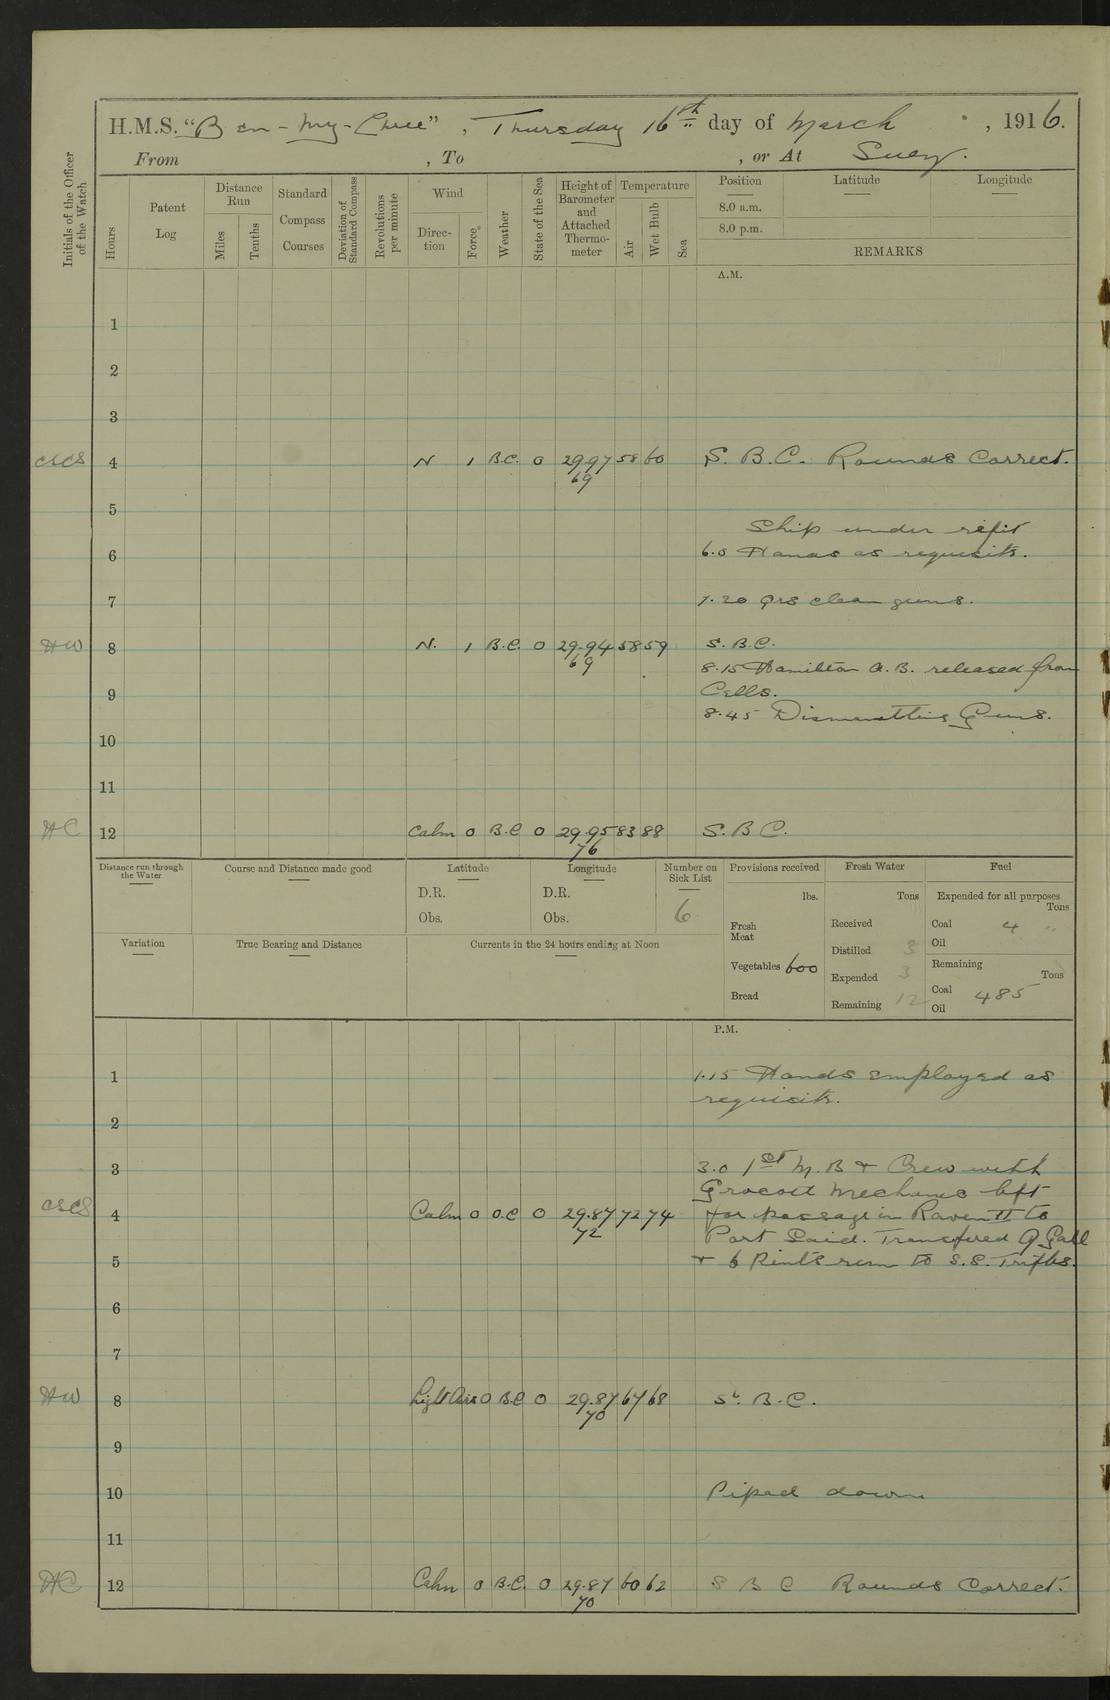 H.M.S. "Ben-my-Chree", Thursday 16th day of March, 1916.
From , To , or At Suez.
Initials of the Officer of the Watch
Hours
Patent Log
Distance Run
Miles
Tenths
Standard Compass Courses
Deviation of Standard Compass
Revolutions per minute
Wind
Direction
Force
Weather
State of the Sea
Height of Barometer and Attached Thermometer
Temperature
Air
Wet Bulb
Sea
Position
Latitude
Longitude
8.0 a.m.
8.0 p.m.
REMARKS
A.M.
1
2
3
CSCS 4 N 1 B.C. 0 29.97 58 60 S. B.C. Rounds Correct.
69
5
Ship under refit
6 6.0 Hands as requisite.
7 7.20 Qrs clean guns.
HW 8 N. 1 B.C. 0 29.94 58 59 S.B.C.
69
8.15 Hamilton A.B. released from
9 Cells.
8.45 Dismantling Guns.
10
11
HC 12 Calm 0 B.C 0 29.95 83 88 S.B.C.
76
Distance run through the Water
Course and Distance made good
Latitude
D.R.
Obs.
Longitude
D.R.
Obs.
Number on Sick List
6
Provisions received
lbs.
Fresh Meat
Vegetables 600
Bread
Fresh Water
Tons
Received
Distilled 3
Expended 3
Remaining 12
Fuel
Expended for all purposes
Tons
Coal 4 "
Oil
Remaining
Tons
Coal 485
Oil
Variation
True Bearing and Distance
Currents in the 24 hours ending at Noon
P.M.
1 1.15 Hands employed as
requisite.
2
3 3.0 1st M.B & Crew with
Grocott Mechanic left
CSCS 4 Calm 0 O.C 0 29.87 72 74 for passage in Raven II to
72
Port Said. Transfered Gall
5 & 6 Pints rum to S.S.
6
7
HW 8 Light Airs 0 B.C 0 29.87 67 68 S. B.C.
70
9
10 Piped down
11
HC 12 Calm 0 B.C. 0 29.87 60 62 S B C Rounds Correct.
70